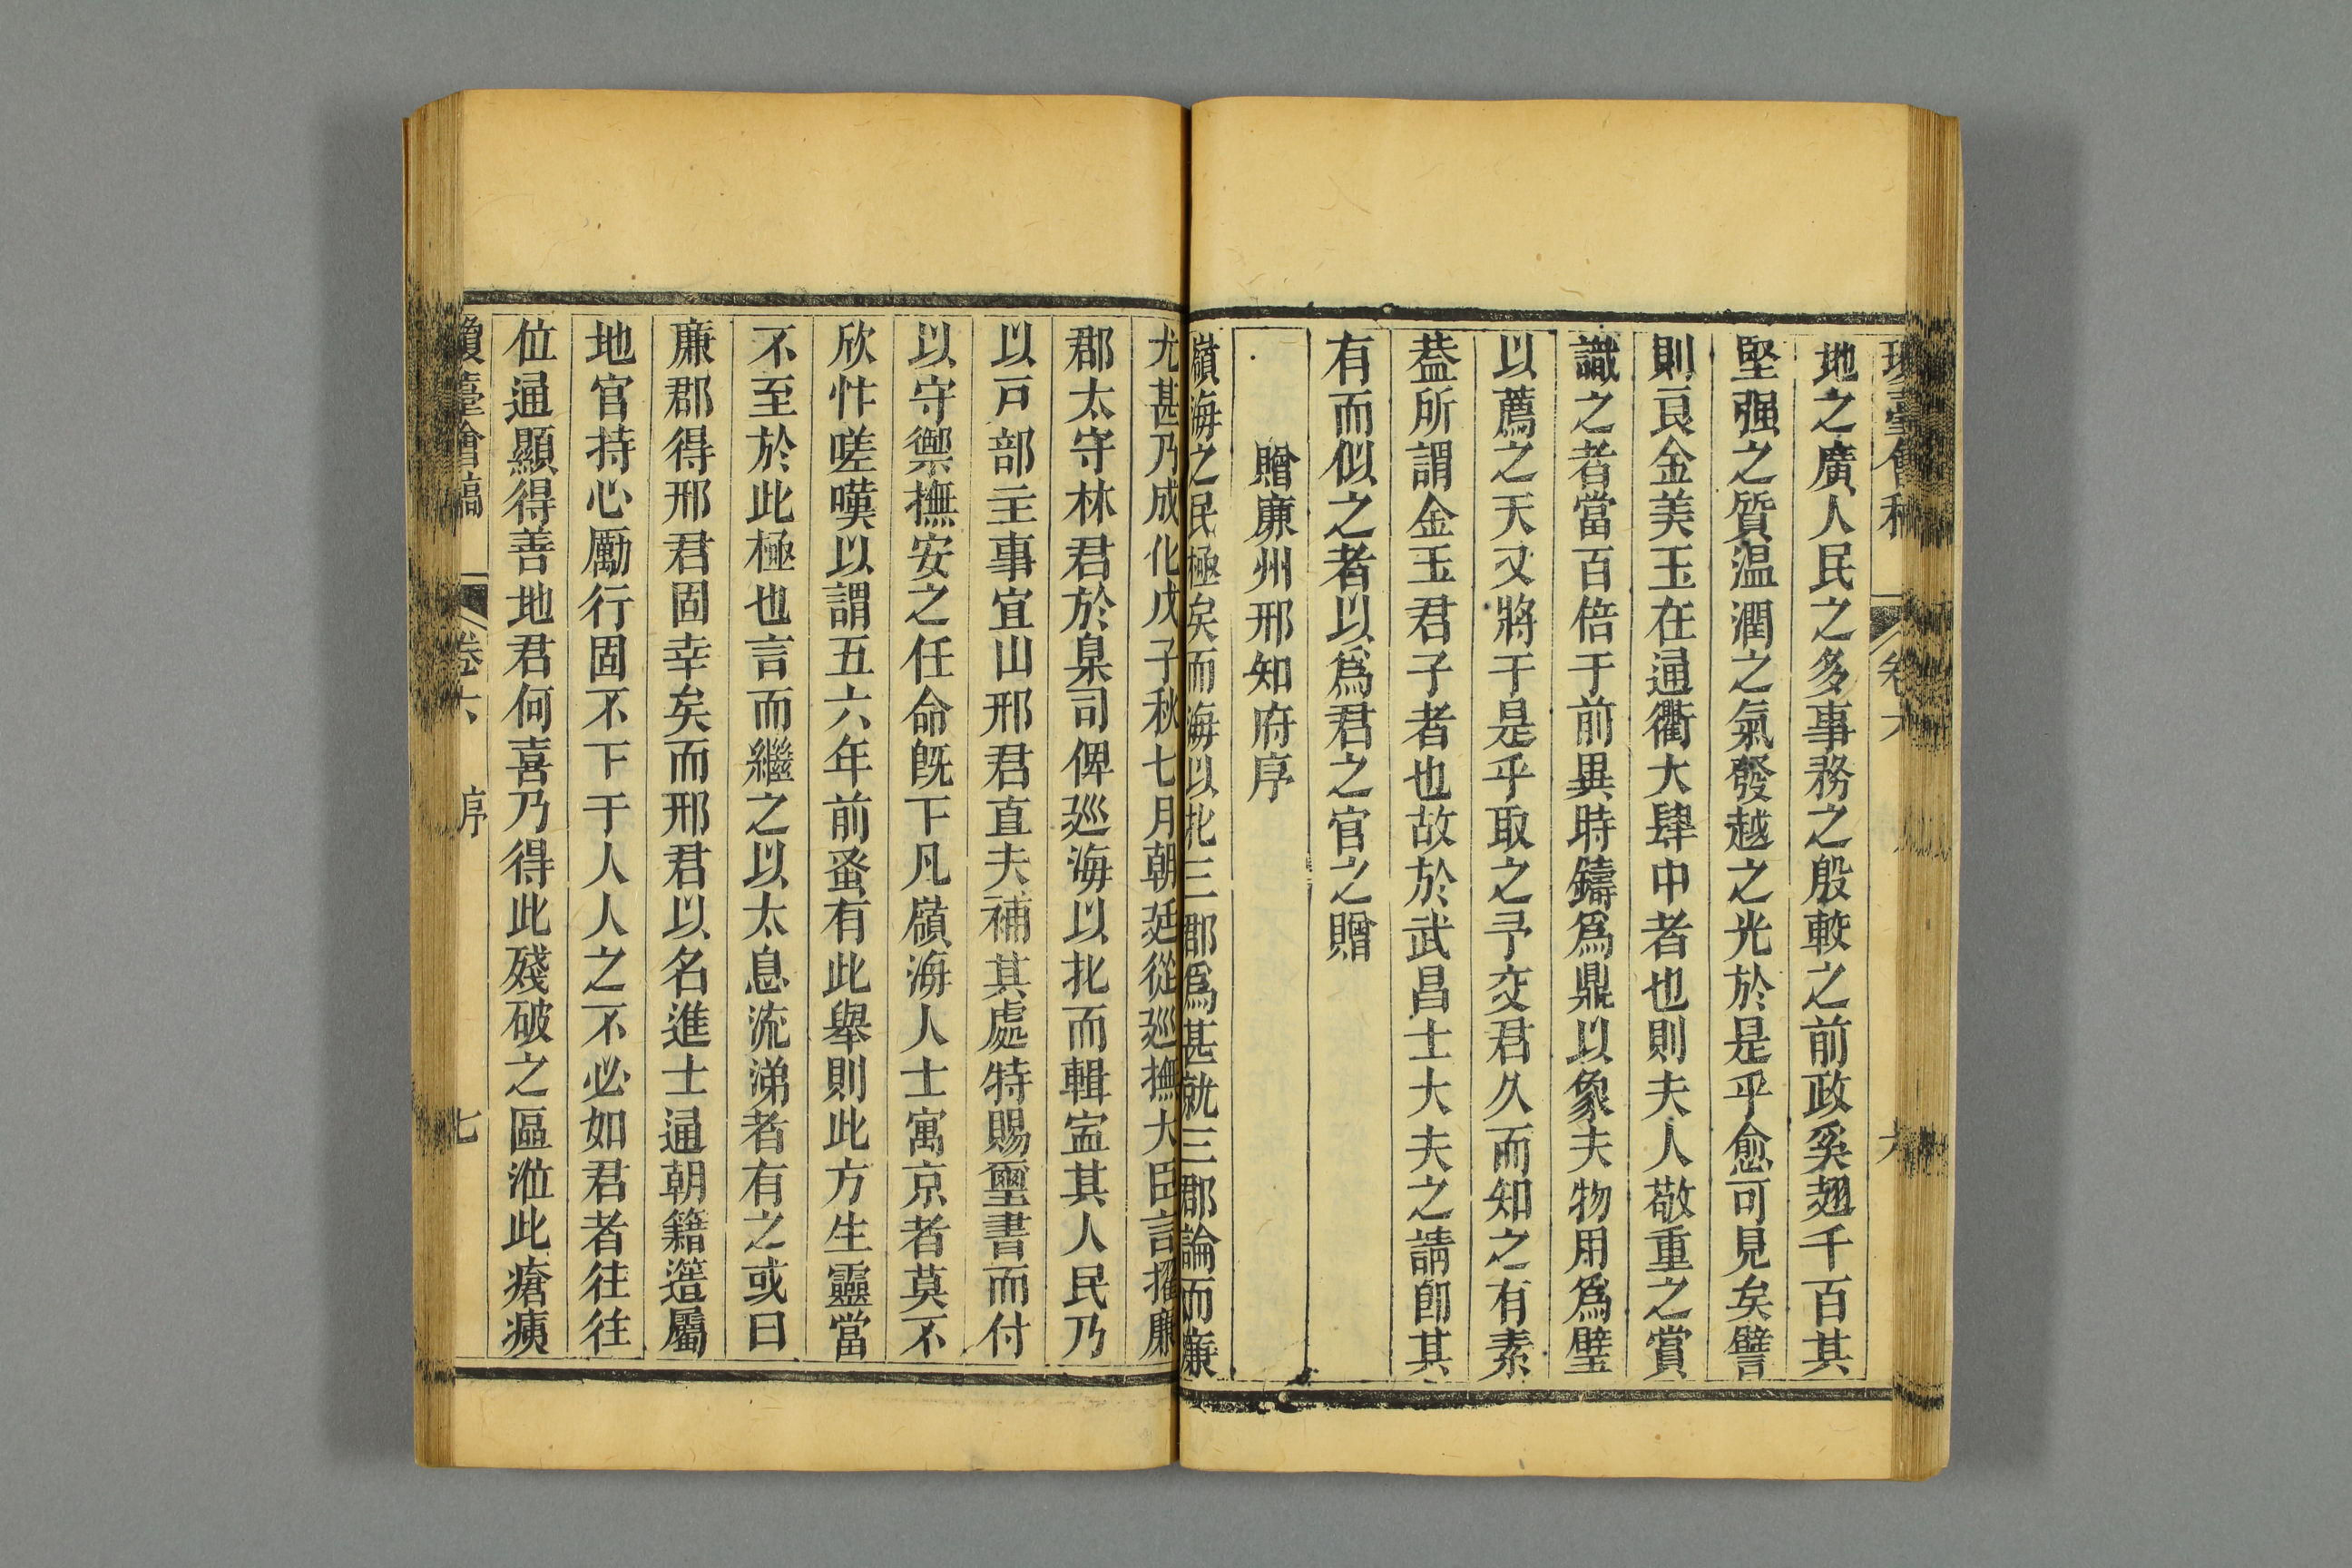 地之廣人民之多事務之殷較之前政奚翅千百其
堅强之質温潤之氣發越之光於是乎愈可見矣譬
則良金美玉在通衢大肆中者也則夫人敬重之賞
識之者當百倍于前異時鑄爲鼎以象夫物用爲璧
以薦之天又將于是乎取之予交君久而知之有素
葢所謂金玉君子者也故於武昌士大夫之請卽其
有而似之者以爲君之官之贈
贈廉州邢知府序
嶺海之民極矣而海以北三郡爲甚就三郡論而廉
尤甚乃成化戊子秋七月朝廷從廵撫大臣言擢廉
郡太守林君於臬司俾廵海以北而輯寍其人民乃
以戸部主事宜山邢君直夫補其處特賜璽書而付
以守禦撫安之任命旣下凡嶺海人士寓京者莫不
欣忭嗟嘆以謂五六年前蚤有此舉則此方生靈當
不至於此極也言而繼之以太息流涕者有之或曰
廉郡得邢君固幸矣而邢君以名進士通朝籍簉屬
地官持心勵行固不下于人人之不必如君者往往
位通顯得善地君何喜乃得此殘破之區涖此瘡痍
瓊臺會稿 卷六 序 七